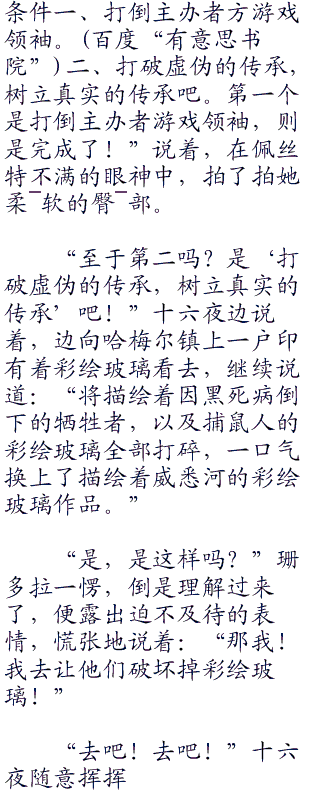 条件一、打倒主办者方游戏
领袖。(百度“有意思书
院”)二、打破虚伪的传承,
树立真实的传承吧。第一个
是打倒主办者游戏领袖，则
是完成了！”说着，在佩丝
特不满的眼神中，拍了拍她
柔¯软的臀¯部。
“至于第二吗？是‘打
破虚伪的传承，树立真实的
传承’吧！”十六夜边说
着，边向哈梅尔镇上一户印
有着彩绘玻璃看去，继续说
道：“将描绘着因黑死病倒
下的牺牲者，以及捕鼠人的
彩绘玻璃全部打碎，一口气
换上了描绘着威悉河的彩绘
玻璃作品。”
“是，是这样吗？”珊
多拉一愣，倒是理解过来
了，便露出迫不及待的表
情，慌张地说着：“那我！
我去让他们破坏掉彩绘玻
璃！”
“去吧！去吧！”十六
夜随意挥挥